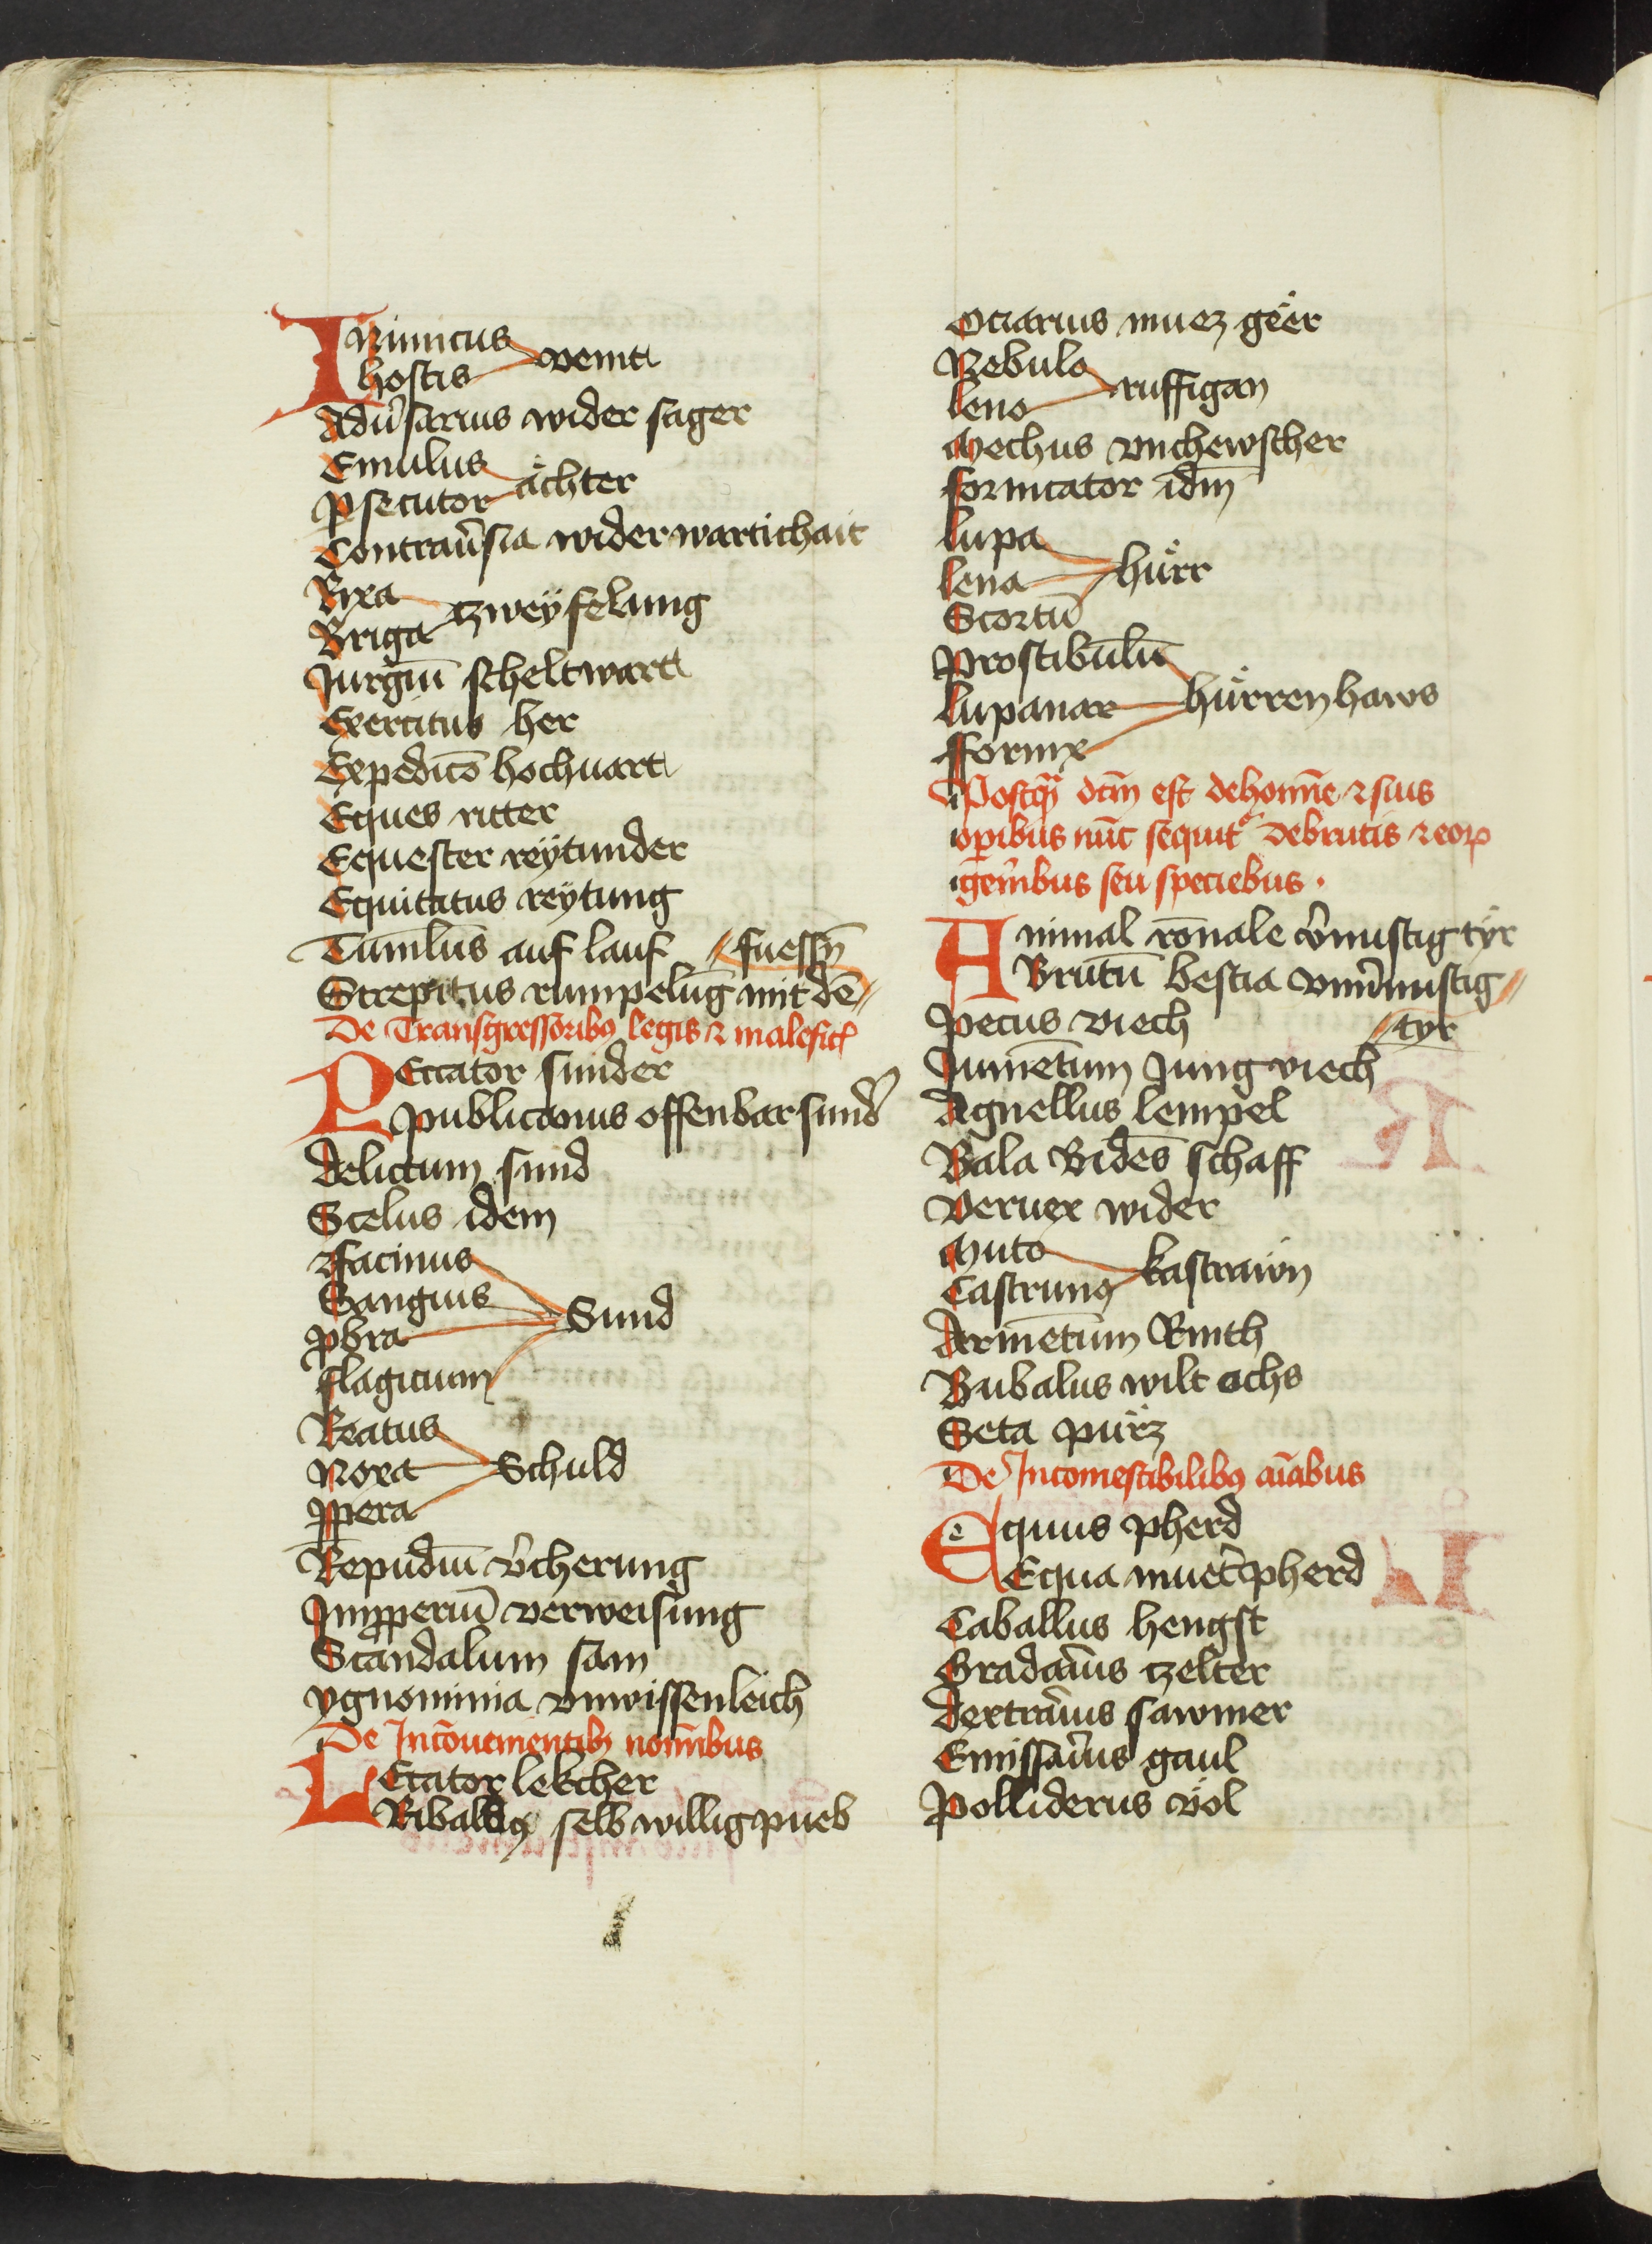 INimicus
hostis veint
Adu̾sarius wider sager
Emulus
ꝑsecutor ächter
Contrau̾sia widerwartichait
Rixa
Briga tzweÿfelung
Jurgiū scheltwart
Exercitus her
Expedicō hochuart
Eques ritter
Equester reÿtunder
Equitatus reÿtung
Tuml̄us auf lauf // fuessn̄
Strepitus rumpelūg mit dē //
De Transgressoribꝫ legis ⁊ malefic̄
PEccator sunder
publicanus offenbar sund̾
delictum sund
Scelus idem
Facinus
Sanguis
ꝓbra Sund
flagitium
Reatus
Noxa Schuld
ꝓpera
Repudiū v̾cherung
Imꝓperiū verweisung
Scandalum sam
ygnominia vnwissenleich
De Incōueniēntibꝫ noīnibus
LEccator lekcher
Ribaldꝯ selb willig pueb
Ociarius muez geër
Nebulo
leno ruffigan
Mechus vnchewscher
fornicator idm̄
lupa
lena hürr
Scortū
Prostibulū
lupanar hürrenhaws
fornix
Postq̄ dc̄m est de homīne ⁊ suis
oꝑibus nūc sequit᷑ de brutis ⁊ eoꝝ
gen̾ibus seu speciebus ·
Animal rōnale v̾nustig tÿr
Brutū bestia vnu̾nustig //
pecus viech // tyr
Jumētum Jung viech
Agnellus lempel
Bala Bidēs schaff
Veruex wider
Muto
Castrunꝯ kastrawn
Armētum Rinth
Bubalus wilt ochs
Seta pürz
De Incomestibilibꝫ aīabus
Equus pherd
Equa muet̾pherd
Caballus hengst
Gradarius tzelter
dextrarius sawmer
Emissarius gaul
Polliderus völ